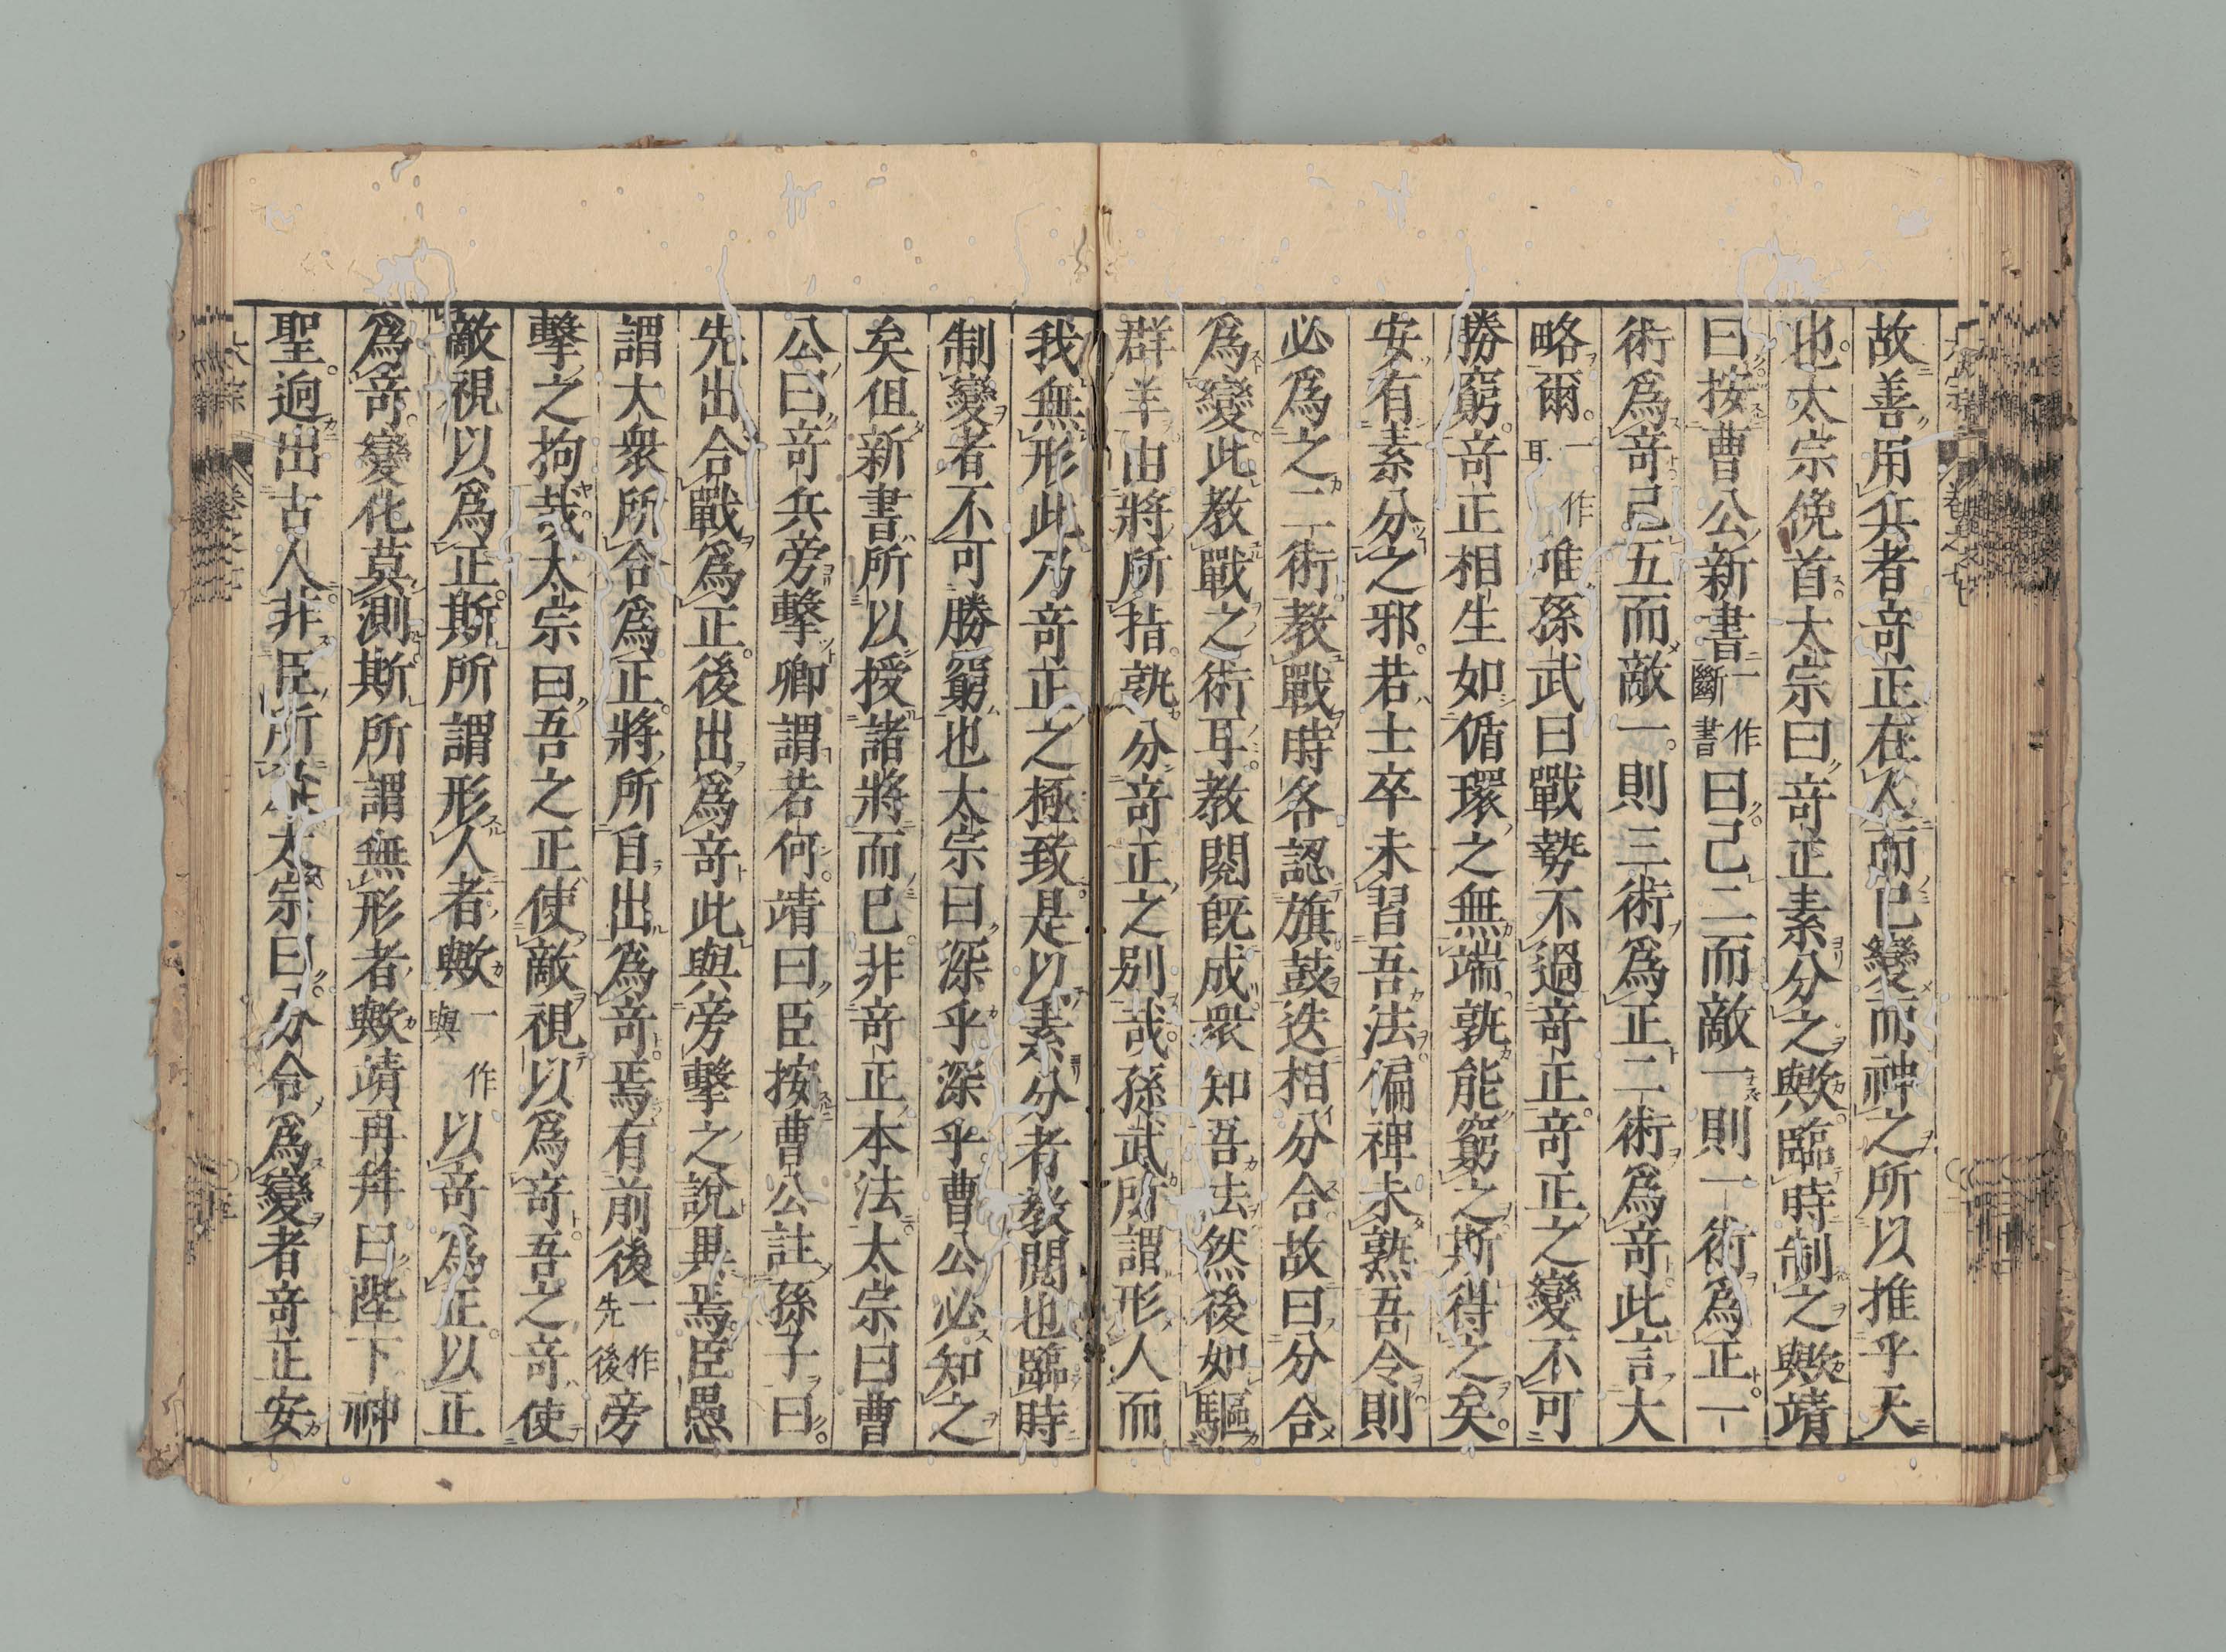 故善用兵者竒正在人而已變而神之所以推乎天
也太宗俛首太宗曰竒正素分之歟臨時制之歟靖
曰按曹公新書一作斷書曰己二而敵一則一術爲正一
術爲竒己五而敵一則三術爲正二術爲竒此言大
略爾一作耳唯孫武曰戰勢不過竒正竒正之變不可
勝窮竒正相生如循環之無端孰能窮之斯得之矣
安有素分之邪若士卒未習吾法偏裨未熟吾令則
必爲之二術教戰時各認旗鼓迭相分合故曰分合
爲變此教戰之術耳教閱旣成衆知吾法然後如驅
群羊由將所指孰分竒正之別哉孫武所謂形人而
我無形此乃竒正之極致是以素分者教閱也臨時
制變者不可勝窮也太宗曰深乎深乎曹公必知之
矣但新書所以授諸將而已非竒正本法太宗曰曹
公曰竒兵旁擊卿謂若何靖曰臣按曹公註孫子曰
先出合戰爲正後出爲竒此與旁擊之說異焉臣愚
謂大衆所合爲正將所自出爲竒焉有前後一作先後旁
擊之拘哉太宗曰吾之正使敵視以爲竒吾之竒使
敵視以爲正斯所謂形人者歟一作與以竒爲正以正
爲竒變化莫測斯所謂無形者歟靖再拜曰陛下神
聖迥出古人非臣所太宗曰分合爲變者竒正安